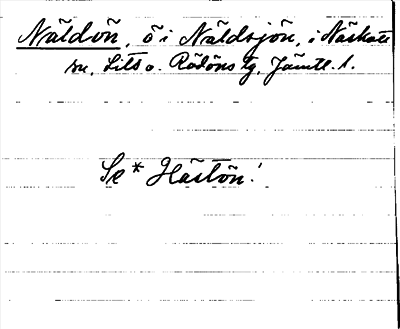 Näldön, ö i Näldsjön, i Näskotts
sn, Lits o. Rödöns tg, Jämtl. l.
Se * Hästön!